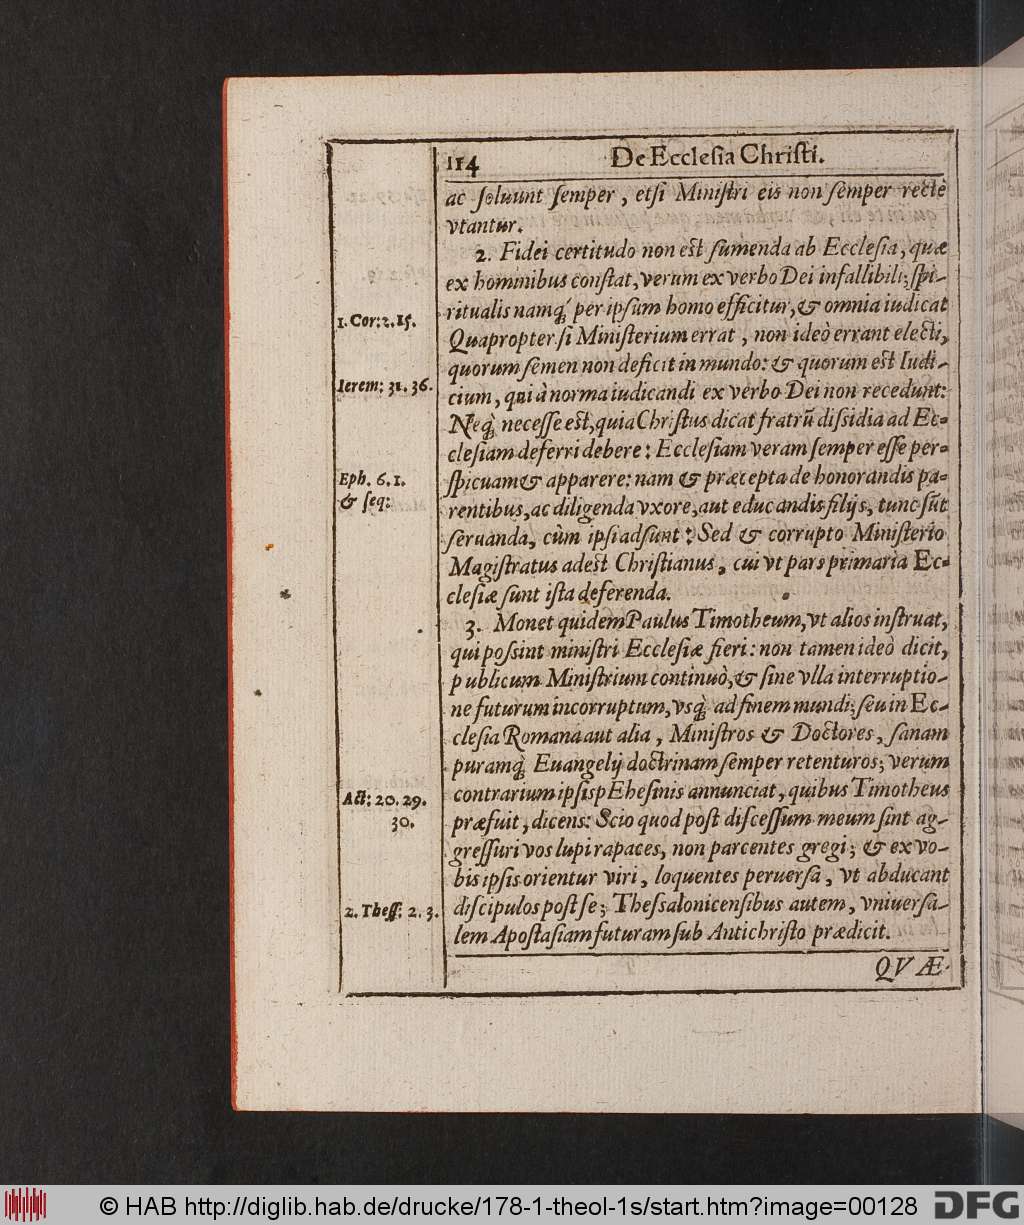 114 De Ecclesia Christi.
ac soluunt semper, etsi Ministri eis non semper rectè
vtantur.
2. Fidei certitudo non est sumenda ab Ecclesia, quæ
ex hominibus constat, verum ex verbo Dei infallibili; spi-
ritualis namq́; per ipsum homo efficitur, & omnia iudicat
1. Cor: 2. 15.
Quapropter si Ministerium errat, non ideò errant electi,
quorum semen non deficit in mundo: & quorum est Iudi-
Ierem: 31. 36.
cium, qui à norma iudicandi ex verbo Dei non recedunt:
Neq; necesse est, quia Christus dicat fratrū dissidia ad Ec-
clesiam deferri debere: Ecclesiam veram semper esse per-
spicuam & apparere: nam & præcepta de honorandis pa-
Eph. 6. 1.
& seq:
rentibus, ac diligenda vxore, aut educandis filijs, tunc sūt
seruanda, cùm ipsi adsunt: Sed & corrupto Ministerio
Magistratus adest Christianus, cui vt pars primaria Ec-
clesiæ sunt ista deferenda.
3. Monet quidem Paulus Timotheum, vt alios instruat,
qui possint ministri Ecclesiæ fieri: non tamen ideò dicit,
publicum Ministrium continuò, & sine vlla interruptio-
ne futurum incorruptum, vsq; ad finem mundi; seu in Ec-
clesia Romana aut alia, Ministros & Doctores, sanam
puramq; Euangelij doctrinam semper retenturos; verum
contrarium ipsis pEhesinis annunciat, quibus Timotheus
Act: 20. 29.
30.
præfuit, dicens: Scio quod post discessum meum sint ag-
gressuri vos lupi rapaces, non parcentes gregi; & ex vo-
bis ipsis orientur viri, loquentes peruersa, vt abducant
discipulos post se; Thessalonicensibus autem, vniuersa-
2. Thess: 2. 3.
lem Apostasiam futuram sub Antichristo prædicit.
QVÆ
© HAB http://diglib.hab.de/drucke/178-1-theol-1s/start.htm?image=00128
DFG